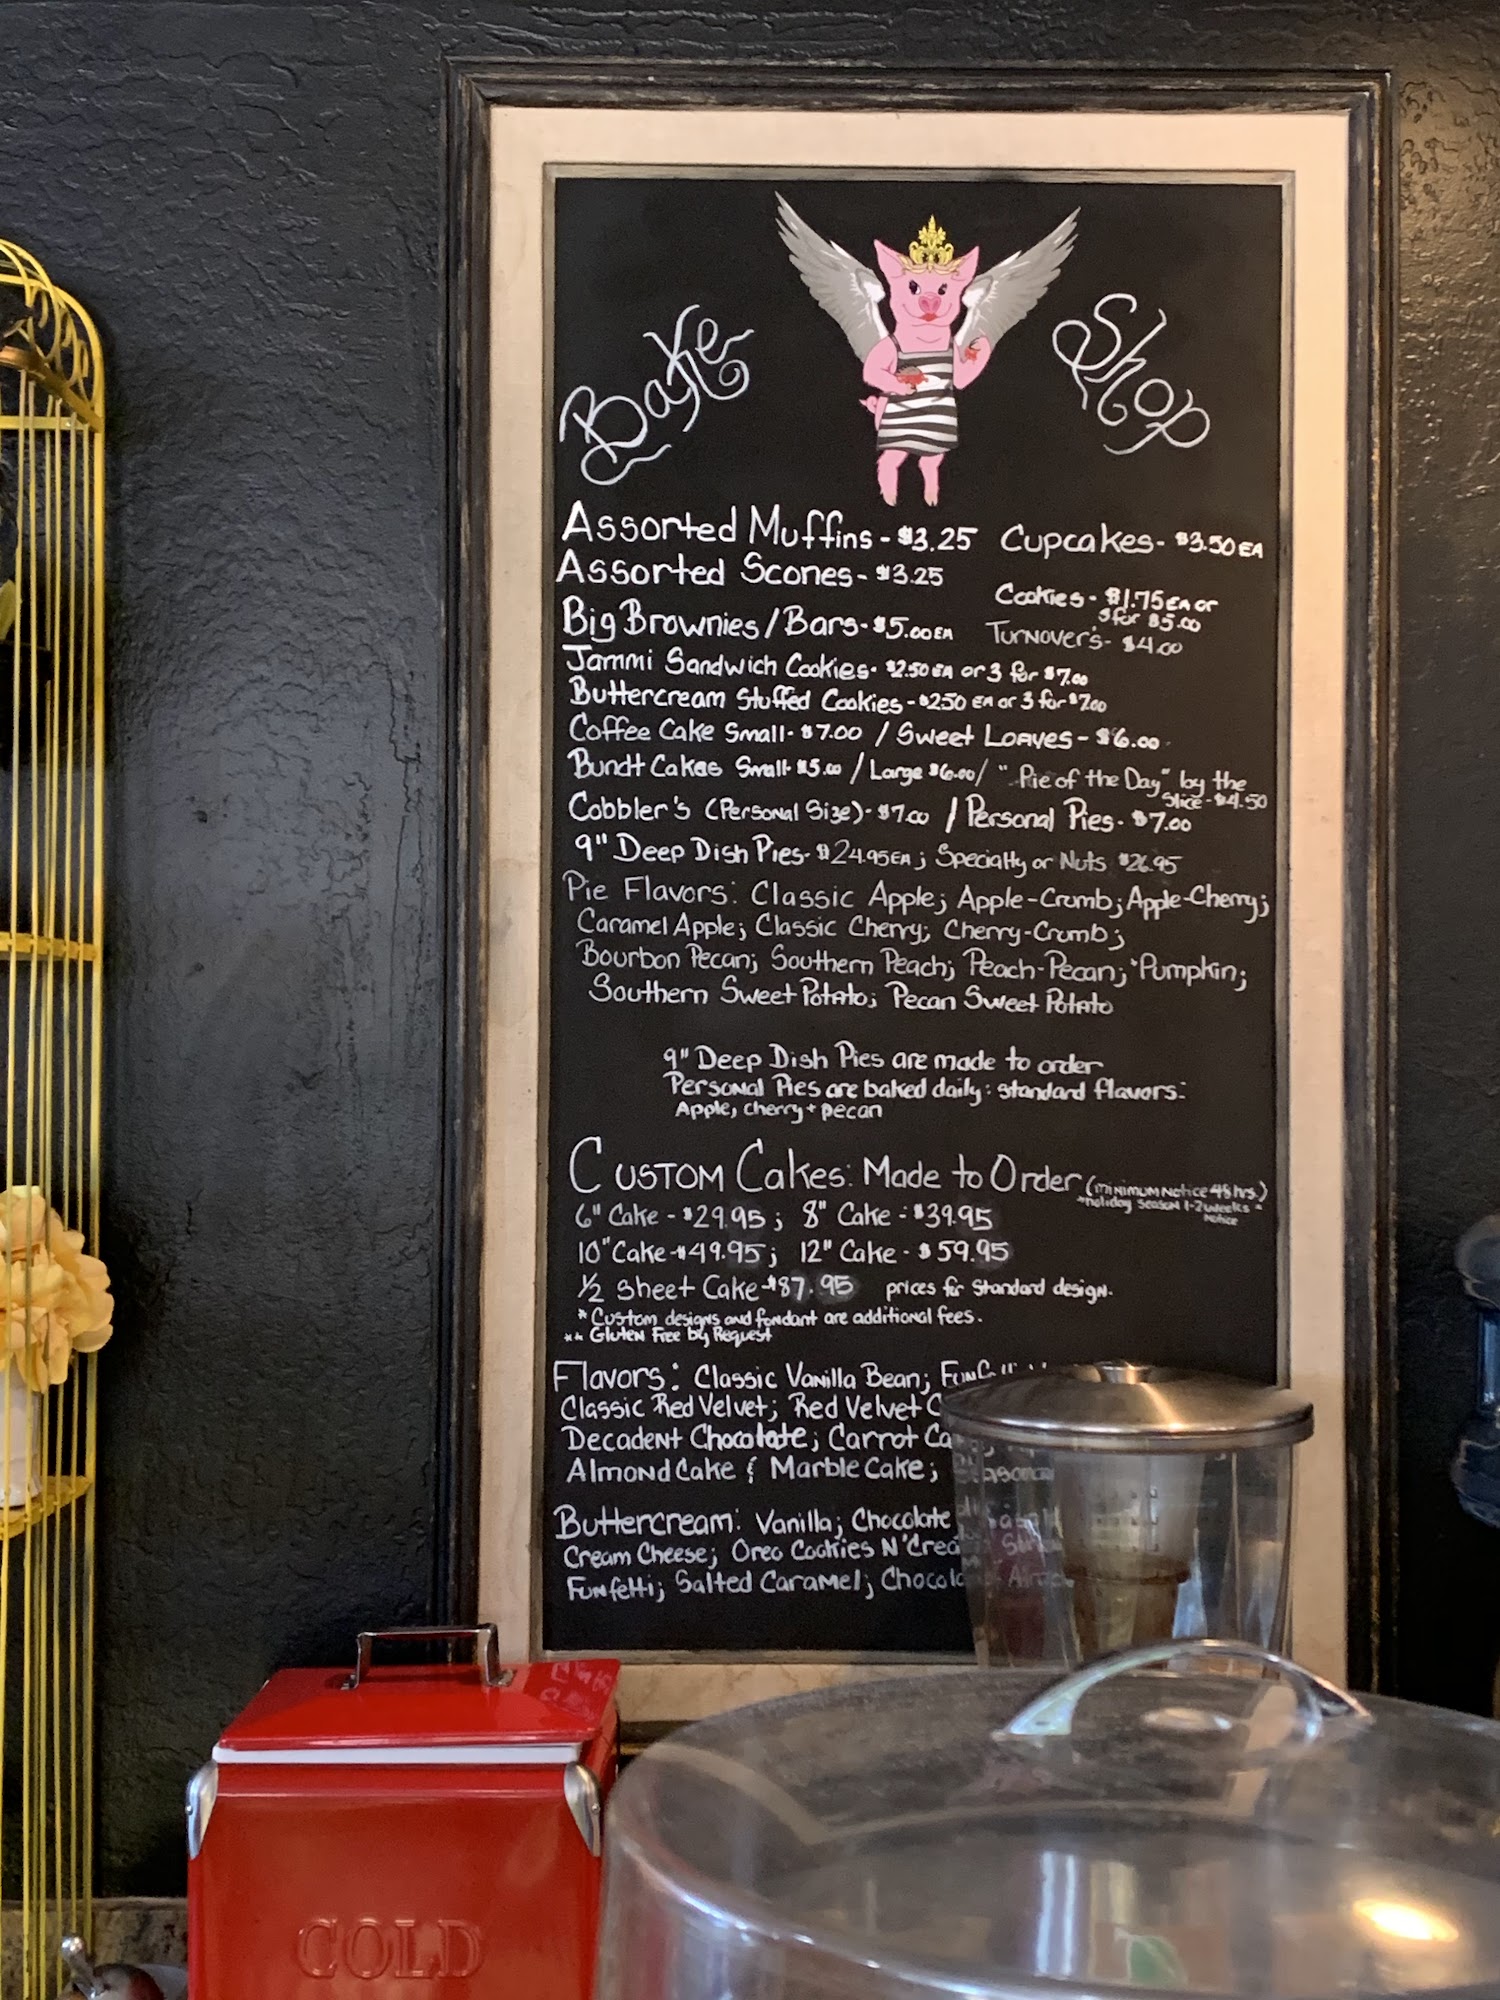 Bake Shop
Assorted Muffins - $3.25 Cupcakes - $3.50 EA
Assorted Scones - $3.25
Cookies - $1.75 EA or
3 for $5.00
Big Brownies / Bars - $5.00 EA Turnover's - $4.00
Jammi Sandwich Cookies - $2.50 EA or 3 for $7.00
Buttercream Stuffed Cookies - $2.50 EA or 3 for $7.00
Coffee Cake Small - $7.00 / Sweet Loaves - $6.00
Bundt Cakes Small $5.00 / Large $6.00 / "Pie of the Day" by the
Slice - $4.50
Cobbler's (Personal Size) - $7.00 / Personal Pies - $7.00
9" Deep Dish Pies - $24.95 EA; Specialty or Nuts $26.95
Pie Flavors: Classic Apple; Apple-Crumb; Apple-Cherry;
Caramel Apple; Classic Cherry; Cherry-Crumb;
Bourbon Pecan; Southern Peach; Peach-Pecan; *Pumpkin;
Southern Sweet Potato; Pecan Sweet Potato
9" Deep Dish Pies are made to order
Personal Pies are baked daily: standard flavors:
Apple, cherry + pecan
Custom Cakes: Made to Order (minimum notice 48 hrs.)
*holiday season 1-2 weeks -
notice
6" Cake - $29.95; 8" Cake - $39.95
10" Cake - $49.95; 12" Cake - $59.95
1/2 Sheet Cake - $87.95 prices for standard design.
* Custom designs and fondant are additional fees.
** Gluten Free by Request
Flavors: Classic Vanilla Bean;
Classic Red Velvet; Red Velvet
Decadent Chocolate; Carrot
Almond Cake & Marble Cake;
Buttercream: Vanilla; Chocolate
Cream Cheese; Oreo Cookies N'
Funfetti; Salted Caramel;
COLD